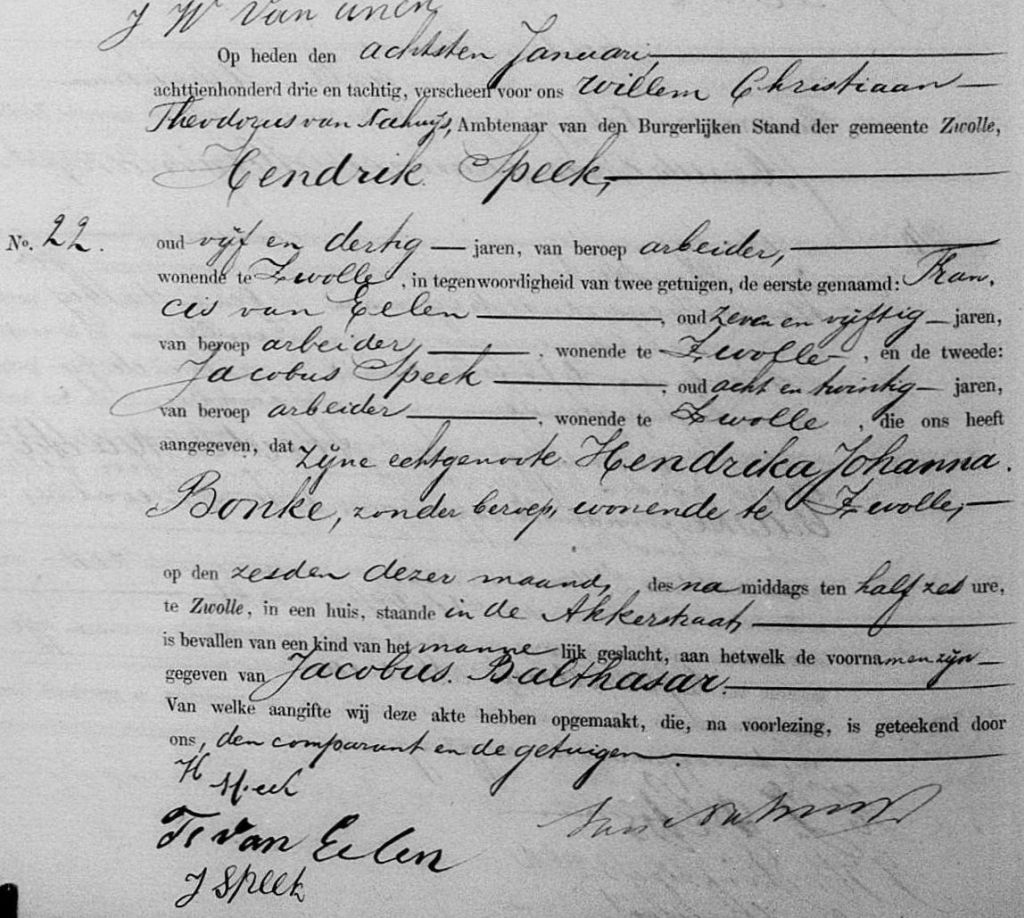 J W Van Unen
Op heden den achtsten Januari
achttienhonderd drie en tachtig, verscheen voor ons Willem Christiaan
Theodorus van Nahuijs, Ambtenaar van den Burgerlijken Stand der gemeente Zwolle,
Hendrik Speek,
No. 22. oud vijf en dertig jaren, van beroep arbeider,
wonende te Zwolle, in tegenwoordigheid van twee getuigen, de eerste genaamd: Fran,
cis van Eelen, oud zeven en vijftig jaren,
van beroep arbeider, wonende te Zwolle, en de tweede:
Jacobus Speek, oud acht en twintig jaren,
van beroep arbeider, wonende te Zwolle, die ons heeft
aangegeven, dat zijne echtgenoote Hendrika Johanna
Bonke, zonder beroep, wonende te Zwolle,
op den zesden dezer maand, des namiddags ten half zes ure,
te Zwolle, in een huis, staande in de Akkerstraat,
is bevallen van een kind van het mannelijk geslacht, aan hetwelk de voornamen zijn
gegeven van Jacobus Balthasar.
Van welke aangifte wij deze akte hebben opgemaakt, die, na voorlezing, is geteekend door
ons, den comparant en de getuigen.
H Speek
Fs Van Eelen
van Nahuijs
J Speek